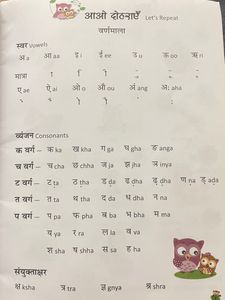 आओ दोहराएँ Let's Repeat
वर्णमाला
स्वर Vowels
अ a आ aa इ i ई ee उ u ऊ oo ऋ ri
मात्रा ा ि ी ु ू ृ
ए ae ऐ ai ओ o औ ou अं ang अः aha
े ै ो ौ ं ः
व्यंजन Consonants
क वर्ग — क ka ख kha ग ga घ gha ङ anga
च वर्ग — च cha छ chha ज ja झ jha ञ inya
ट वर्ग — ट ṭa ठ ṭha ड ḍa ढ ḍha ण ṇa ड़ ḍa
त वर्ग — त ta थ tha द da ध dha न na
प वर्ग — प pa फ pha ब ba भ bha म ma
य ya र ra ल la व va
श sha ष shha स sa ह ha
संयुक्ताक्षर
क्ष ksha त्र tra ज्ञ gnya श्र shra